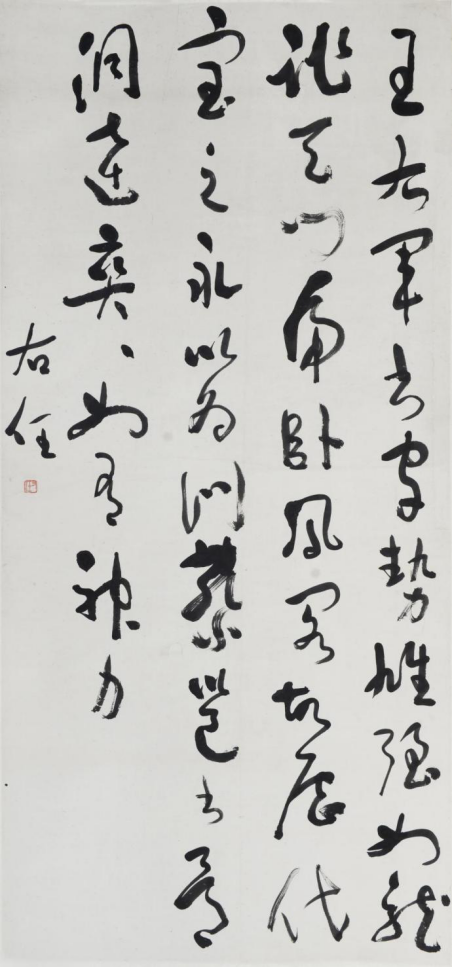 王右軍書字勢雄強如龍
跳天門虎臥鳳閣故歷代
寶之永以為訓蔡邕書骨
氣洞達爽爽如有神力
右任